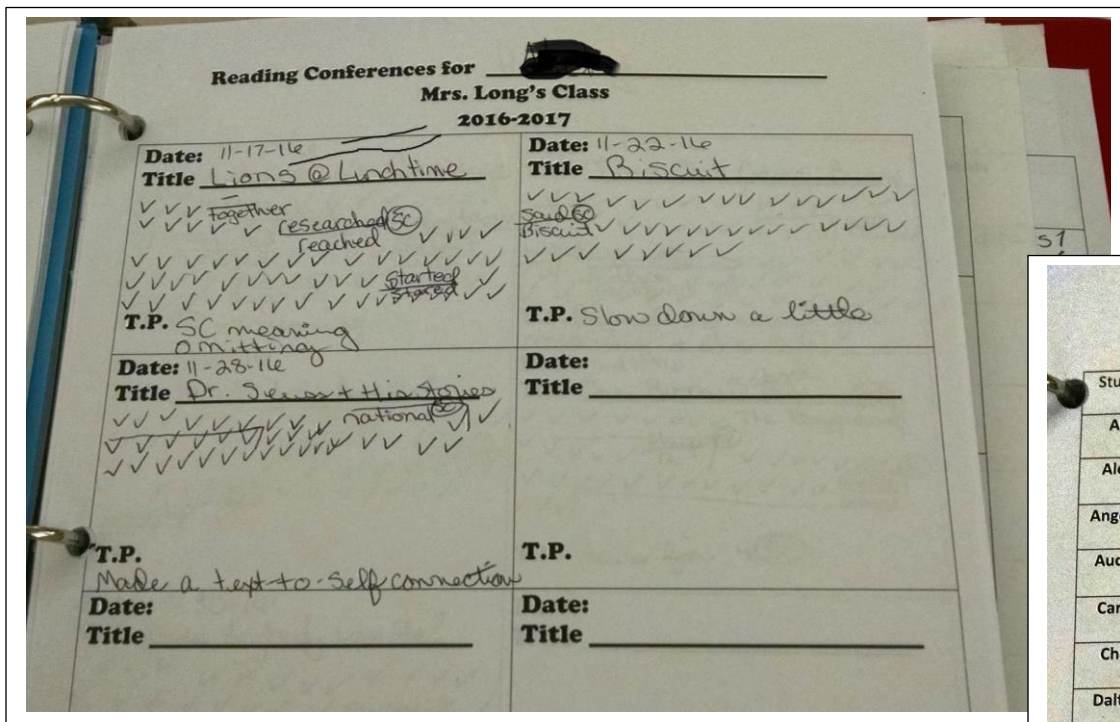 Reading Conferences for
Mrs. Long's Class
2016-2017
Date: 11-17-16
Title Lions @ Lunchtime
✓ ✓ ✓ together
✓ ✓ ✓ ✓ ✓ researched SC
reached ✓ ✓ ✓ ✓
✓ ✓ ✓ ✓ ✓ ✓ ✓ ✓ ✓ ✓ ✓ ✓ ✓
✓ ✓ ✓ ✓ ✓ ✓ ✓ ✓ ✓ started ✓
✓ ✓ ✓ ✓ ✓ ✓ ✓ ✓ ✓ ✓ ✓
T.P. SC meaning
omitting
Date: 11-22-16
Title Biscuit
✓ ✓ ✓ ✓ ✓ ✓ ✓ ✓ ✓ ✓ ✓ ✓ ✓
said SC
Biscuit ✓ ✓ ✓ ✓ ✓ ✓ ✓ ✓ ✓ ✓ ✓ ✓ ✓
✓ ✓ ✓ ✓ ✓ ✓ ✓
T.P. Slow down a little
Date: 11-28-16
Title Dr. Seuss + His Stories
✓ ✓ ✓ ✓ ✓ ✓ ✓ ✓ national SC ✓
✓ ✓ ✓ ✓ ✓ ✓ ✓ ✓ ✓ ✓ ✓ ✓
✓ ✓ ✓ ✓ ✓ ✓ ✓ ✓ ✓ ✓ ✓ ✓ ✓
T.P.
Made a text-to-self connection
Date:
Title
T.P.
Date:
Title
Date:
Title